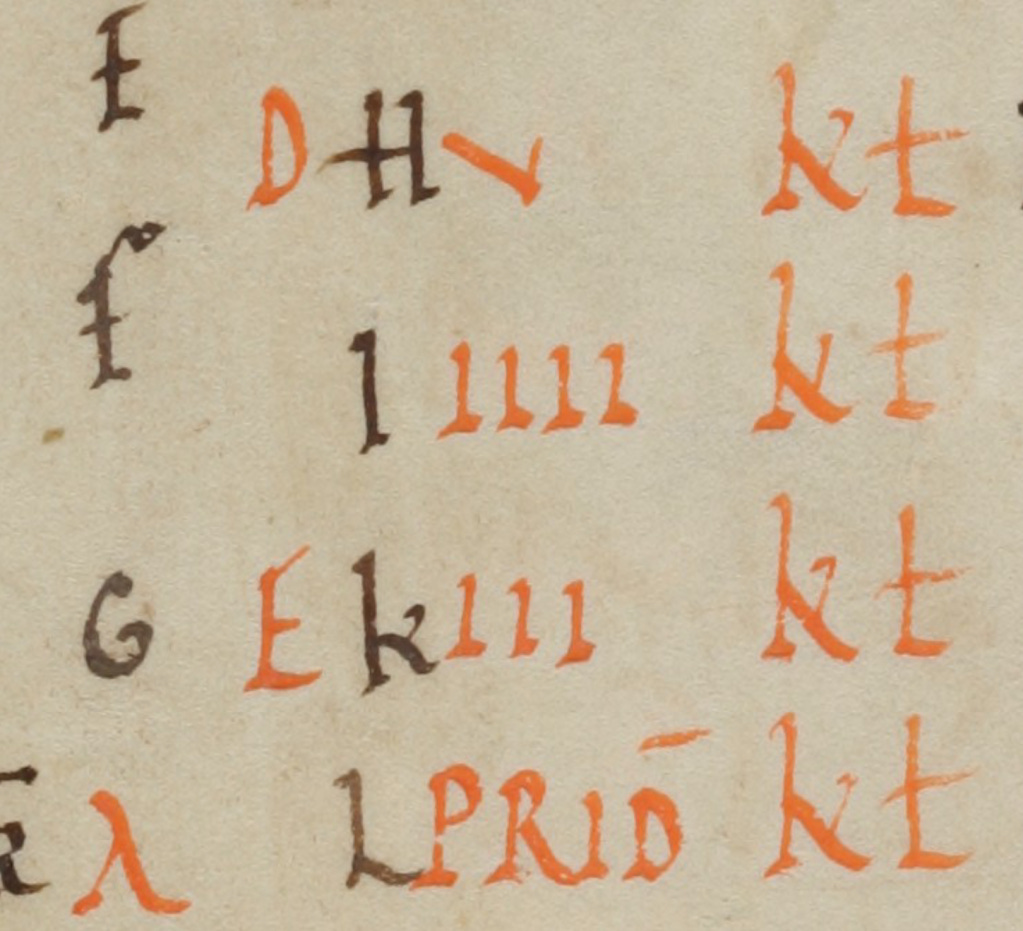 E D H V kł
F I IIII kł
G E k III kł
A L PRID̄ kł